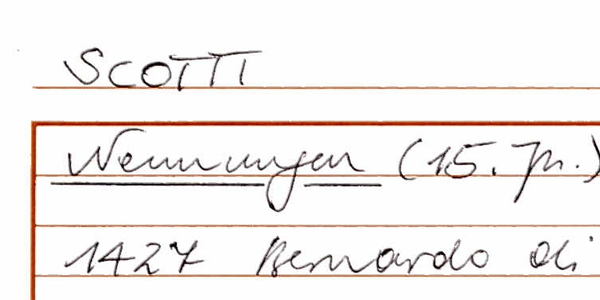 SCOTTI
Nennungen (15. Jh.)
1427 Bernardo di